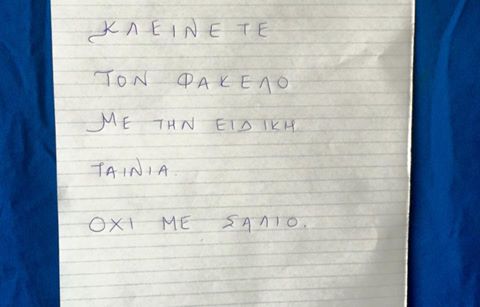 ΚΛΕΙΝΕΤΕ
ΤΟΝ ΦΑΚΕΛΟ
ΜΕ ΤΗΝ ΕΙΔΙΚΗ
ΤΑΙΝΙΑ.
ΟΧΙ ΜΕ ΣΑΛΙΟ.